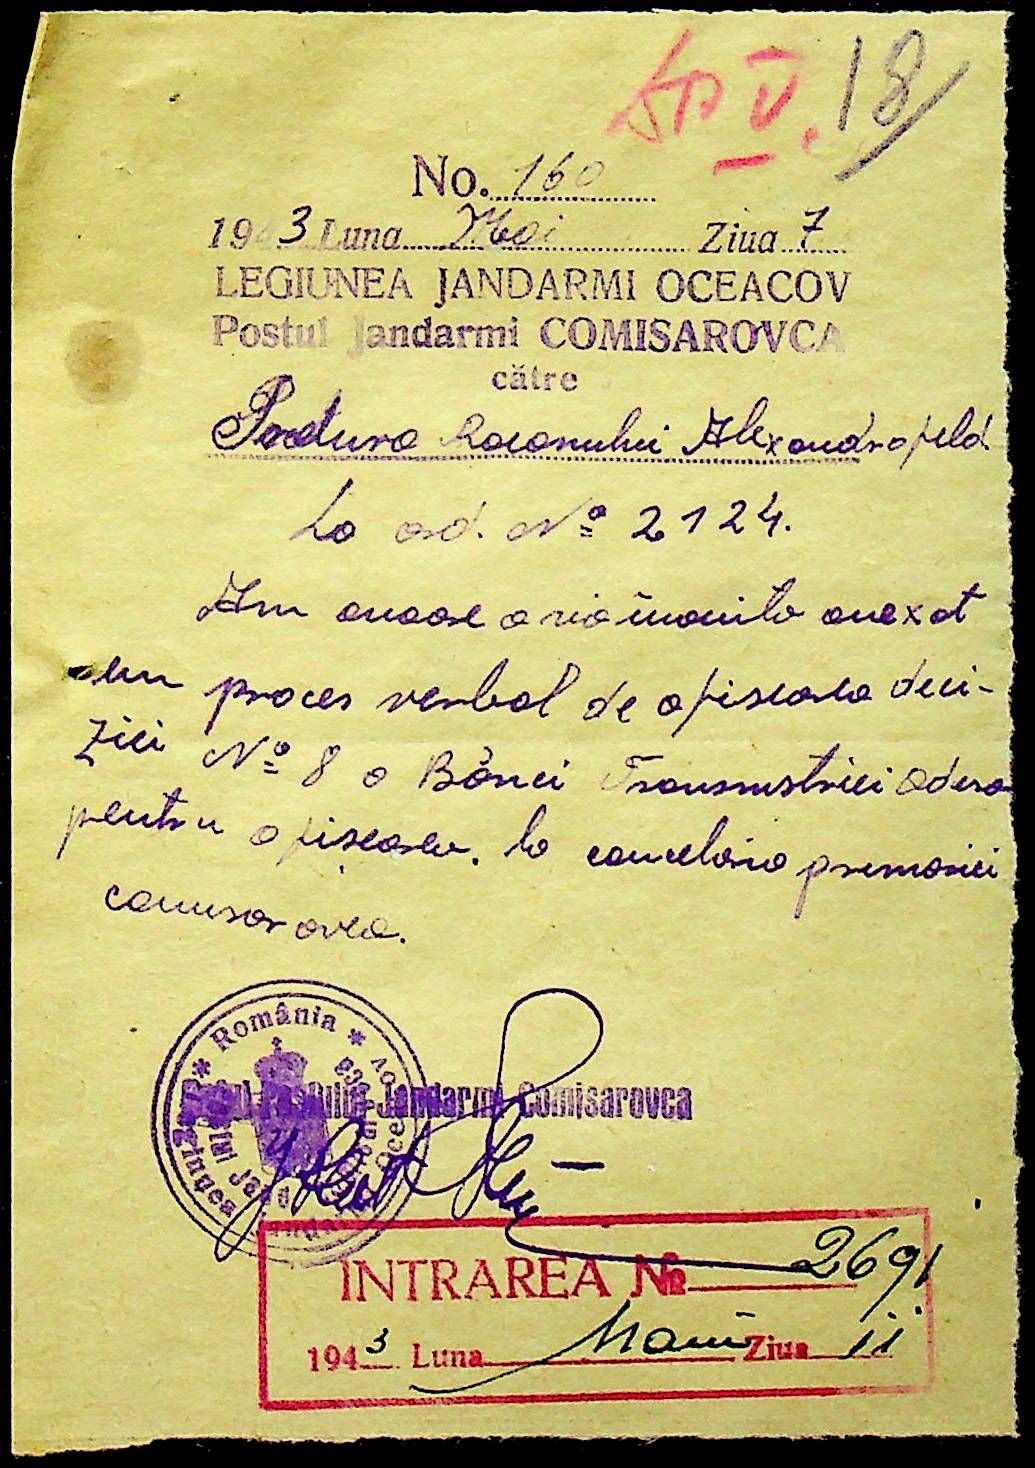 V. 18
No. 160
1943 Luna Mai Ziua 7
LEGIUNEA JANDARMI OCEACOV
Postul Jandarmi COMISAROVCA
către
Pretura Raionului Alexandrafeld
La ord. Nº 2124.
Am onoare a vă înainta anexat
un proces verbal de afisarea deci-
ziei Nº 8 a Băncei Transnistriei Odesa
pentru afisarea. la cancelaria primariei
comisarovca.
* România *
Postului Jandarmi Comisarovca
INTRAREA No 2691
1943 Luna Maiu Ziua 11